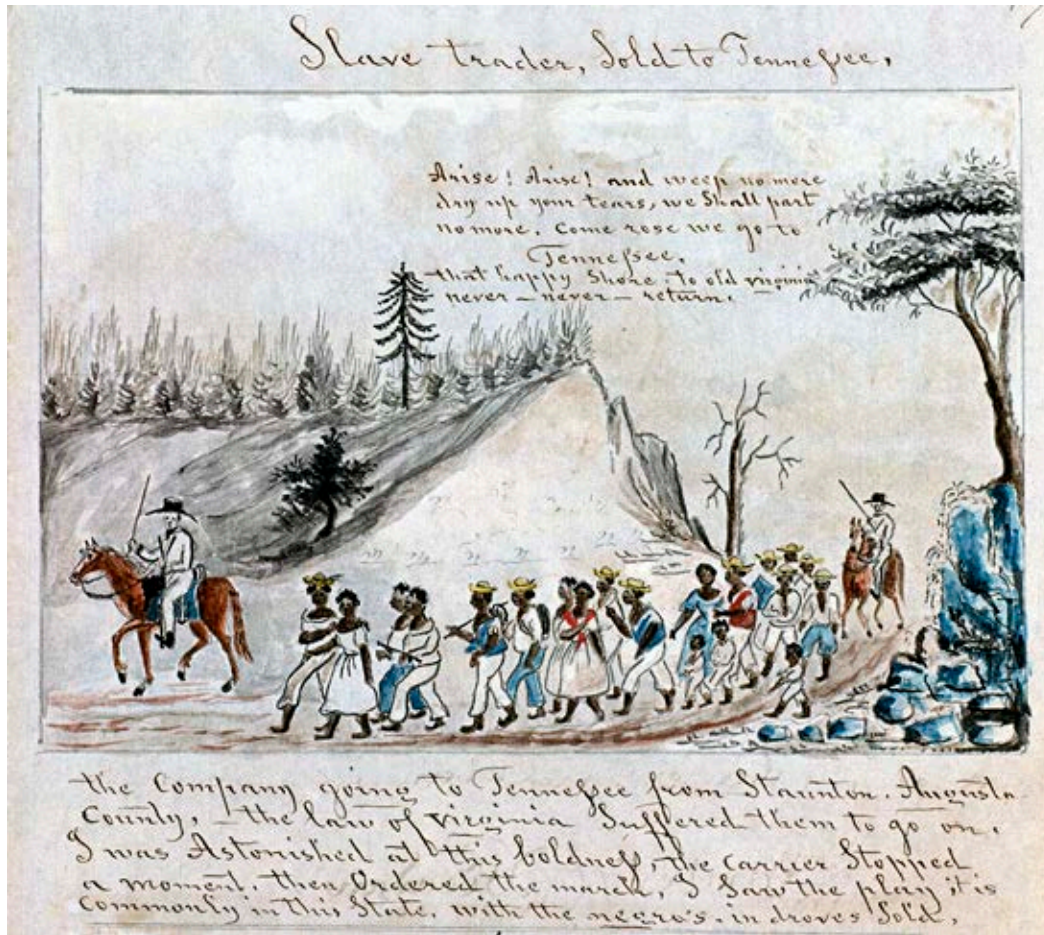 Slave trader, Sold to Tennessee,
Arise! Arise! and weep no more
dry up your tears, we Shall part
no more. Come rose we go to
Tennessee,
that happy Shore, to old virginia
never – never – return.
the Company going to Tennessee from Staunton, Augusta
County, – the law of virginia Suffered them to go on.
I was Astonished at this boldness, the carrier Stopped
a moment, then Ordered the march, I Saw the play it is
Commonly in this State, with the negro's in droves Sold,